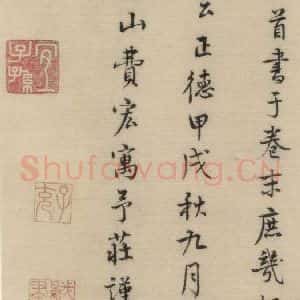 首書于卷末庶幾
云正德甲戌秋九月
山費宏寓予莊謹
Shufawang.CN